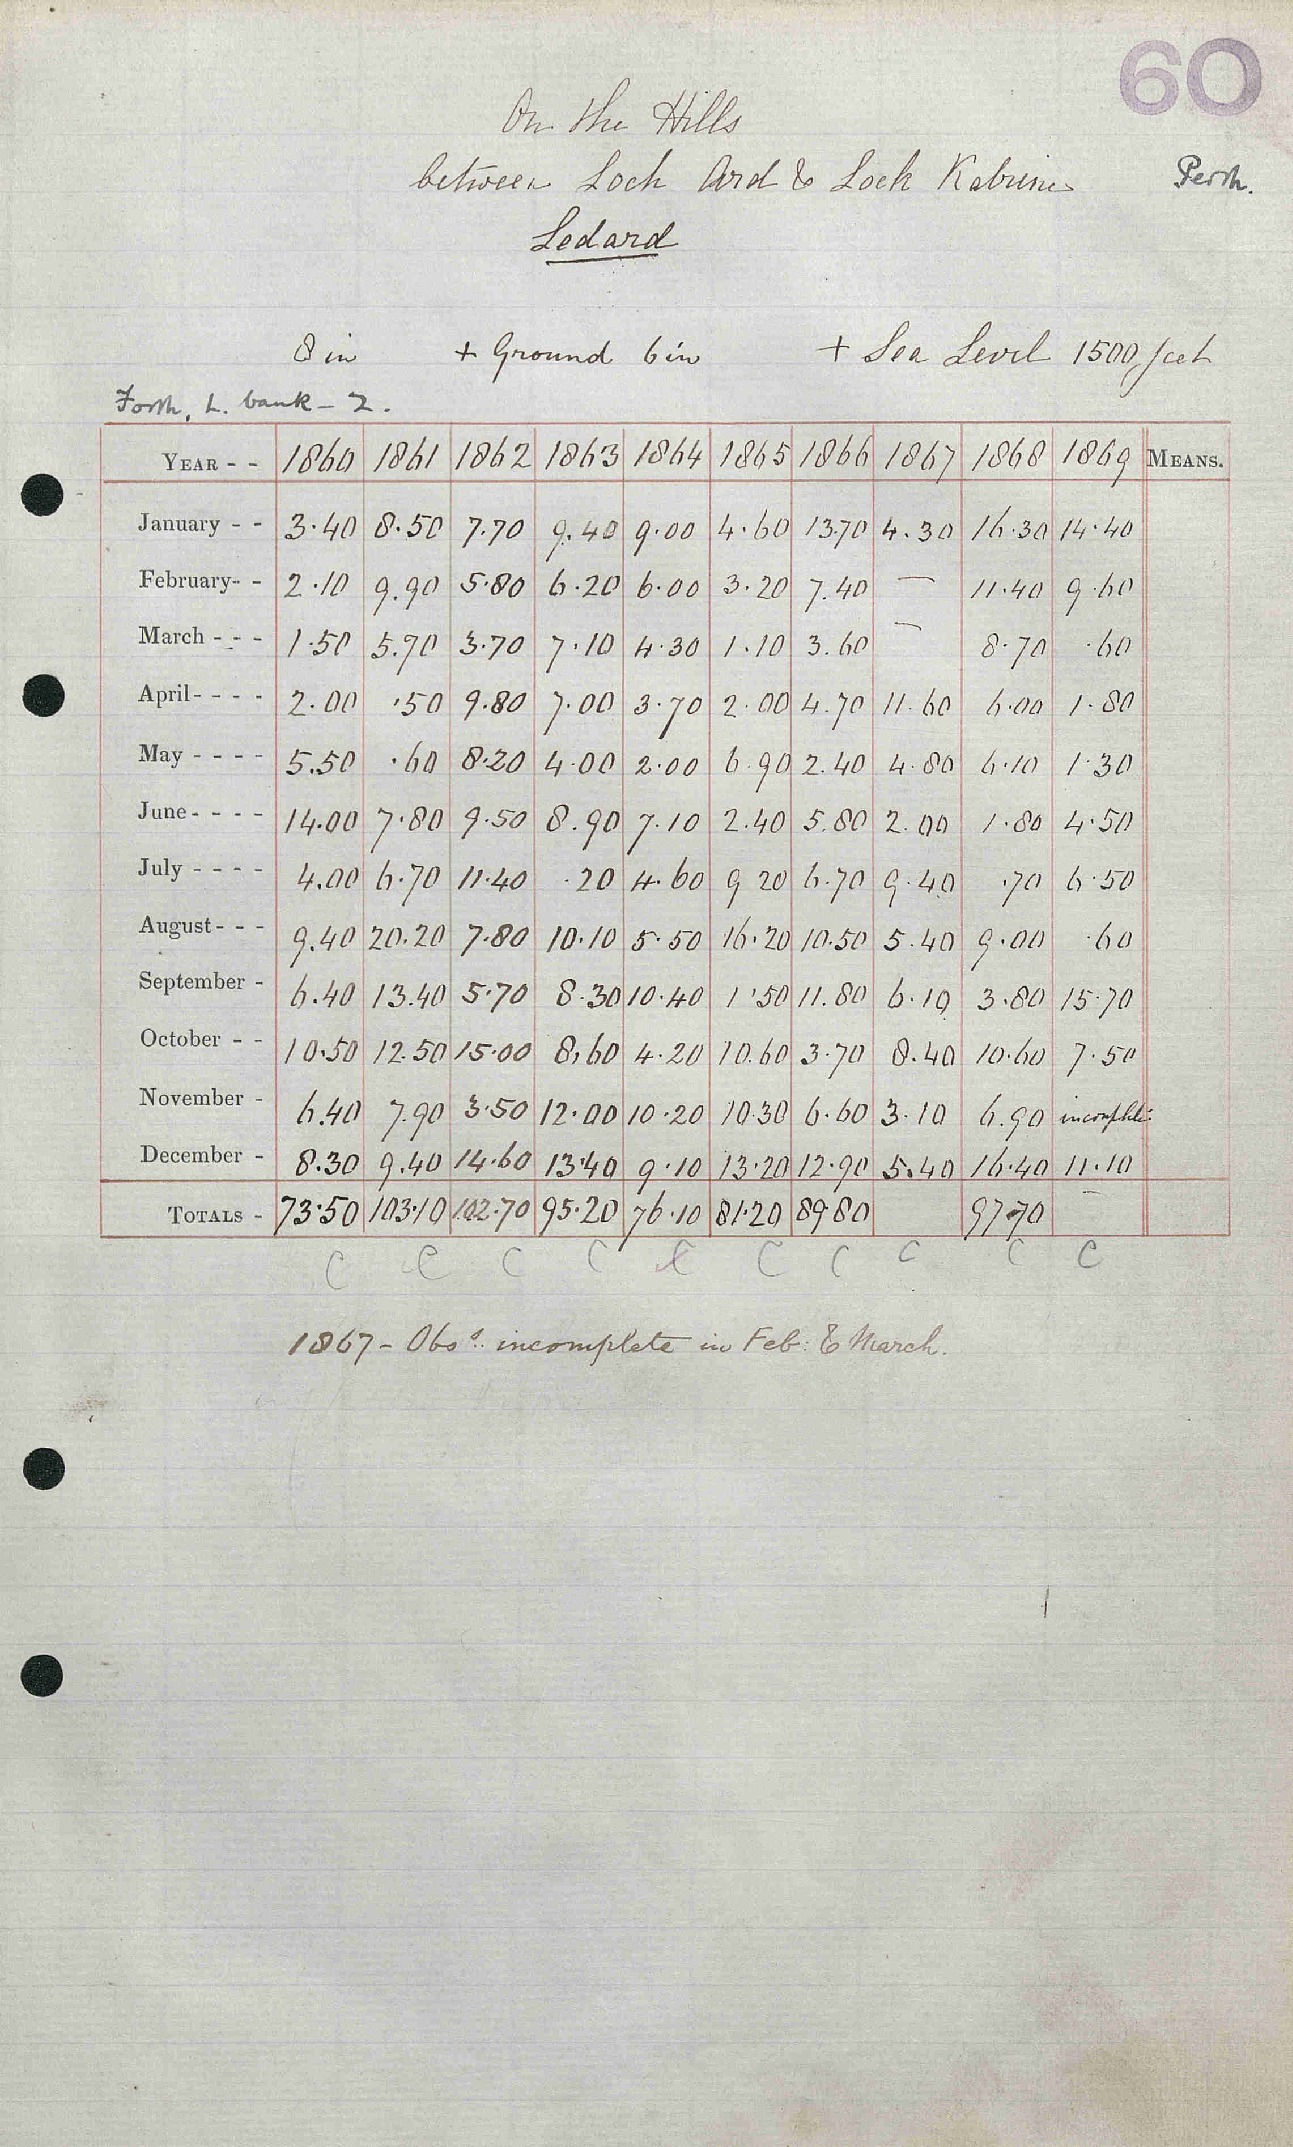 60
On the Hills
between Loch Ard & Loch Katrine
Perth.
Ledard
8 in + Ground 6 in + Sea Level 1500 feet
Forth, L. bank - 2.
YEAR - - 1860 1861 1862 1863 1864 1865 1866 1867 1868 1869 MEANS.
January - - 3.40 8.50 7.70 9.40 9.00 4.60 13.70 4.30 16.30 14.40
February- - 2.10 9.90 5.80 6.20 6.00 3.20 7.40 — 11.40 9.60
March - - - 1.50 5.70 3.70 7.10 4.30 1.10 3.60 — 8.70 .60
April- - - - 2.00 .50 9.80 7.00 3.70 2.00 4.70 11.60 6.00 1.80
May - - - - 5.50 .60 8.20 4.00 2.00 6.90 2.40 4.80 6.10 1.30
June- - - - 14.00 7.80 9.50 8.90 7.10 2.40 5.80 2.00 1.80 4.50
July - - - - 4.00 6.70 11.40 .20 4.60 9.20 6.70 9.40 .70 6.50
August- - - 9.40 20.20 7.80 10.10 5.50 16.20 10.50 5.40 9.00 .60
September - 6.40 13.40 5.70 8.30 10.40 1.50 11.80 6.10 3.80 15.70
October - - 10.50 12.50 15.00 8.60 4.20 10.60 3.70 8.40 10.60 7.50
November - 6.40 7.90 3.50 12.00 10.20 10.30 6.60 3.10 6.90 incomplete
December - 8.30 9.40 14.60 13.40 9.10 13.20 12.90 5.40 16.40 11.10
TOTALS - 73.50 103.10 102.70 95.20 76.10 81.20 89.80 97.70 —
C C C C C C C C C C
1867 - Obs.s incomplete in Feb: & March.